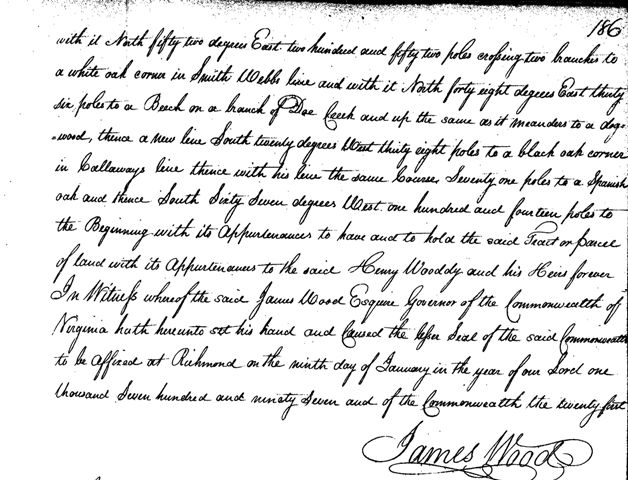 186
with it North fifty two degrees East two hundred and fifty two poles crossing two branches to
a white oak corner in Smith Webbs line and with it North forty eight degrees East thirty
six poles to a Beech on a branch of Doe Creek and up the same as it meanders to a dog-
-wood, thence a new line South twenty degrees West thirty eight poles to a black oak corner
in Callaways line thence with his line the same Course, Seventy one poles to a Spanish
oak and thence South Sixty Seven degrees West one hundred and fourteen poles to
the Beginning with its Appurtenances to have and to hold the said Tract or parcel
of land with its Appurtenances to the said Henry Wooddy and his Heirs forever
In Witness whereof the said James Wood Esquire Governor of the Commonwealth of
Virginia hath hereunto set his hand and Caused the lesser Seal of the said Commonwealth
to be affixed at Richmond on the ninth day of January in the year of our Lord one
thousand Seven hundred and ninety Seven and of the Commonwealth the twenty first
James Wood